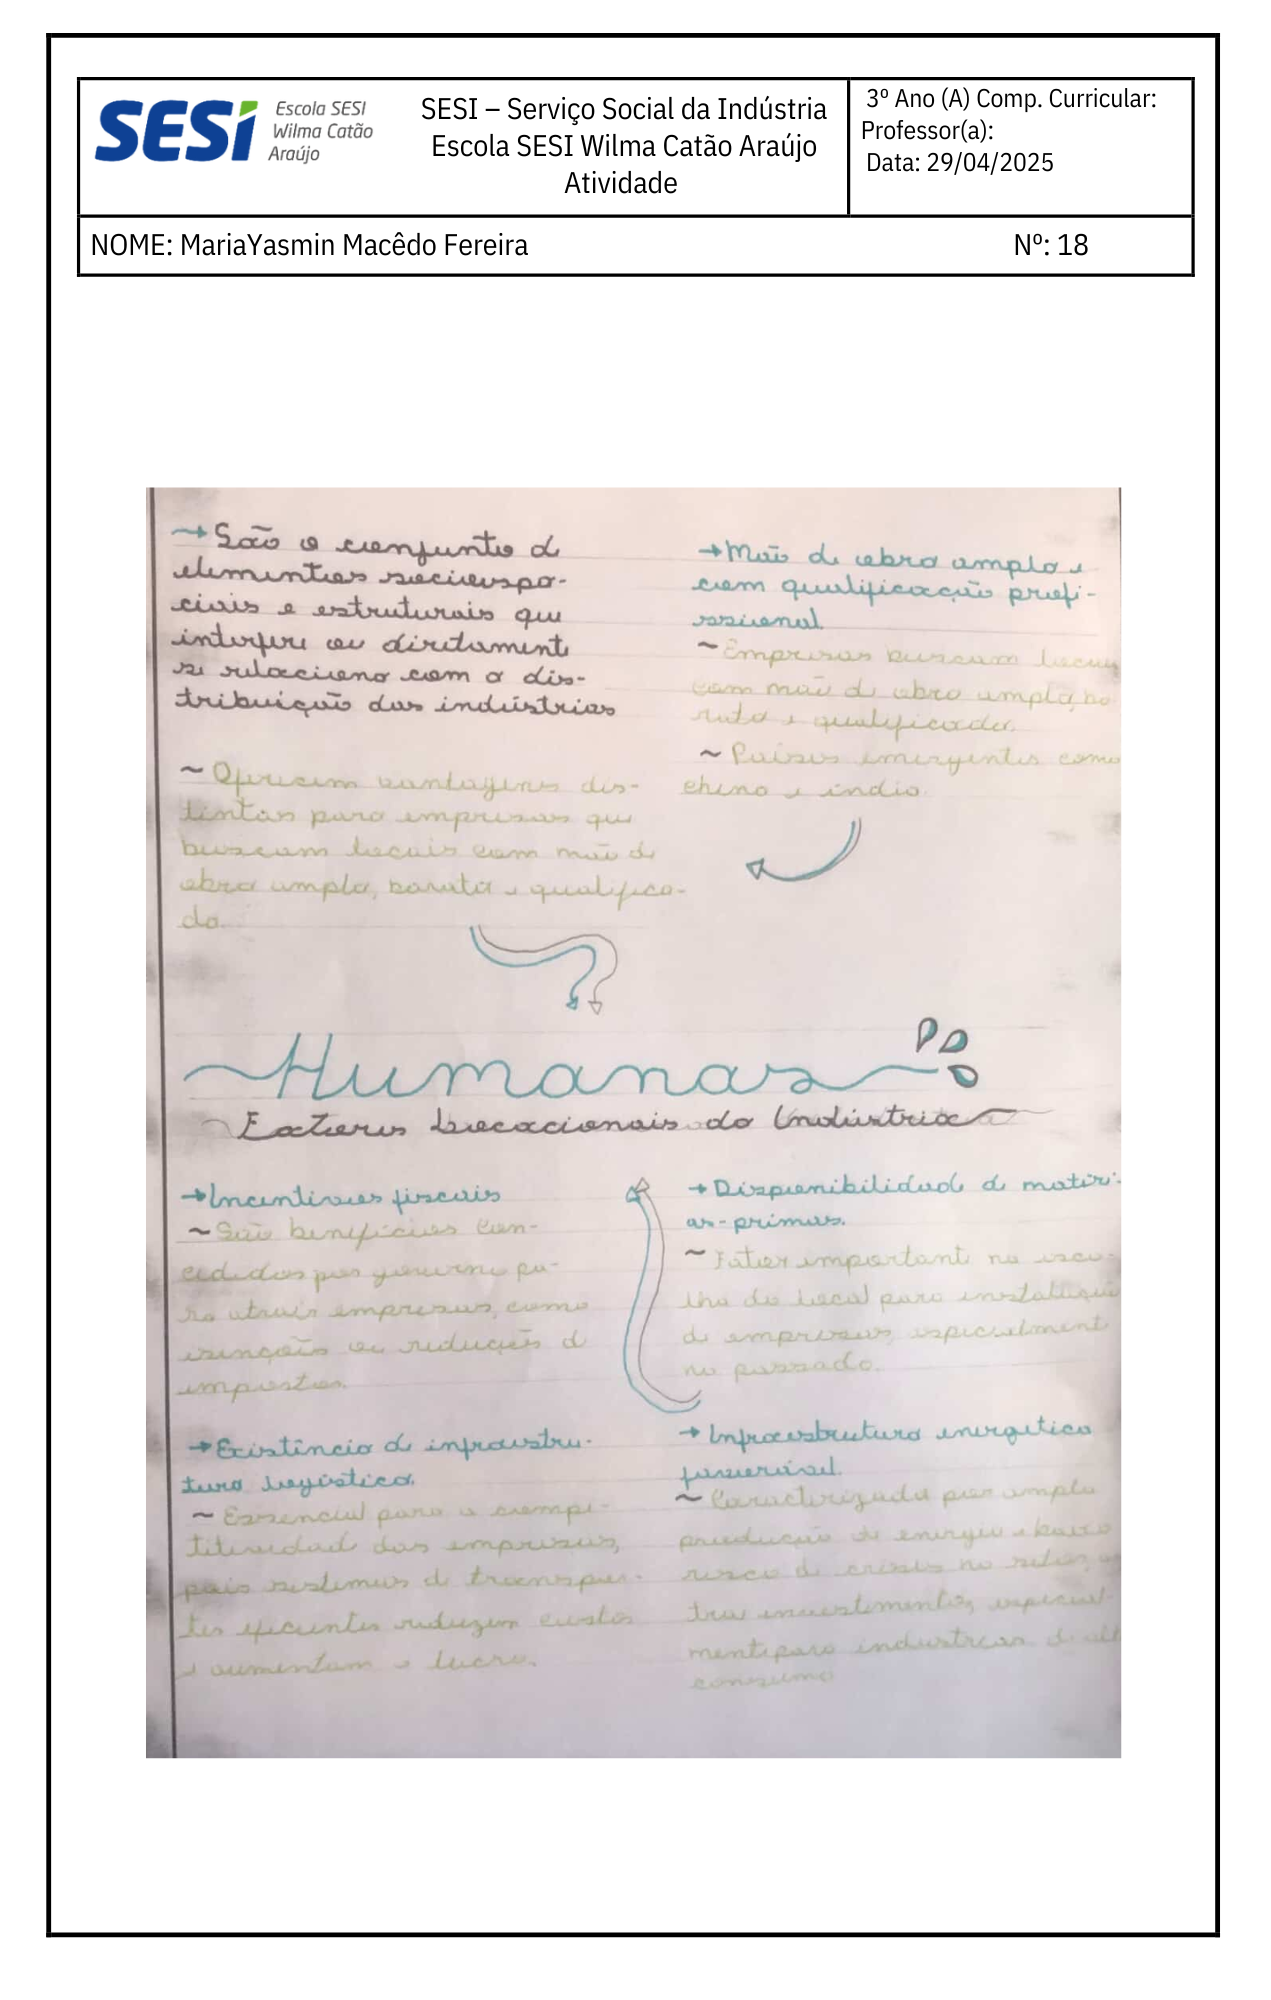 SESI
Escola SESI
Wilma Catão
Araújo
SESI – Serviço Social da Indústria
Escola SESI Wilma Catão Araújo
Atividade
3º Ano (A) Comp. Curricular:
Professor(a):
Data: 29/04/2025
NOME: MariaYasmin Macêdo Fereira Nº: 18
→ São o conjunto de
elementos socioespa-
ciais e estruturais que
interfere ou diretamente
se relaciona com a dis-
tribuição das indústrias
~ Oferecem vantagens dis-
tintas para empresas que
buscam locais com mão de
obra ampla, barata e qualifica-
da.
→ Mão de obra ampla e
com qualificação profi-
ssional
~ Empresas buscam locais
com mão de obra ampla, ba
rata e qualificada.
~ Países emergentes como
china e india.
Humanas
Fatores Locacionais da Indústria
→ Incentivos fiscais
~ São benefícios con-
cedidos por governo pa-
ra atrair empresas, como
isenções ou reduções de
impostos.
→ Disponibilidade de matéri-
as-primas.
~ Fator importante na esco-
lha do local para instalação
de empresas, especialmente
no passado.
→ Existência de infraestru-
tura logística.
~ Essencial para a compe-
titividade das empresas,
pois sistemas de transpor-
tes eficientes reduzem custos
e aumentam o lucro.
→ Infraestrutura energética
favorável.
~ Caracterizada por ampla
produção de energia e baixo
risco de crises no setor, a
trai investimentos, especial-
mente para industrias de alt
consumo